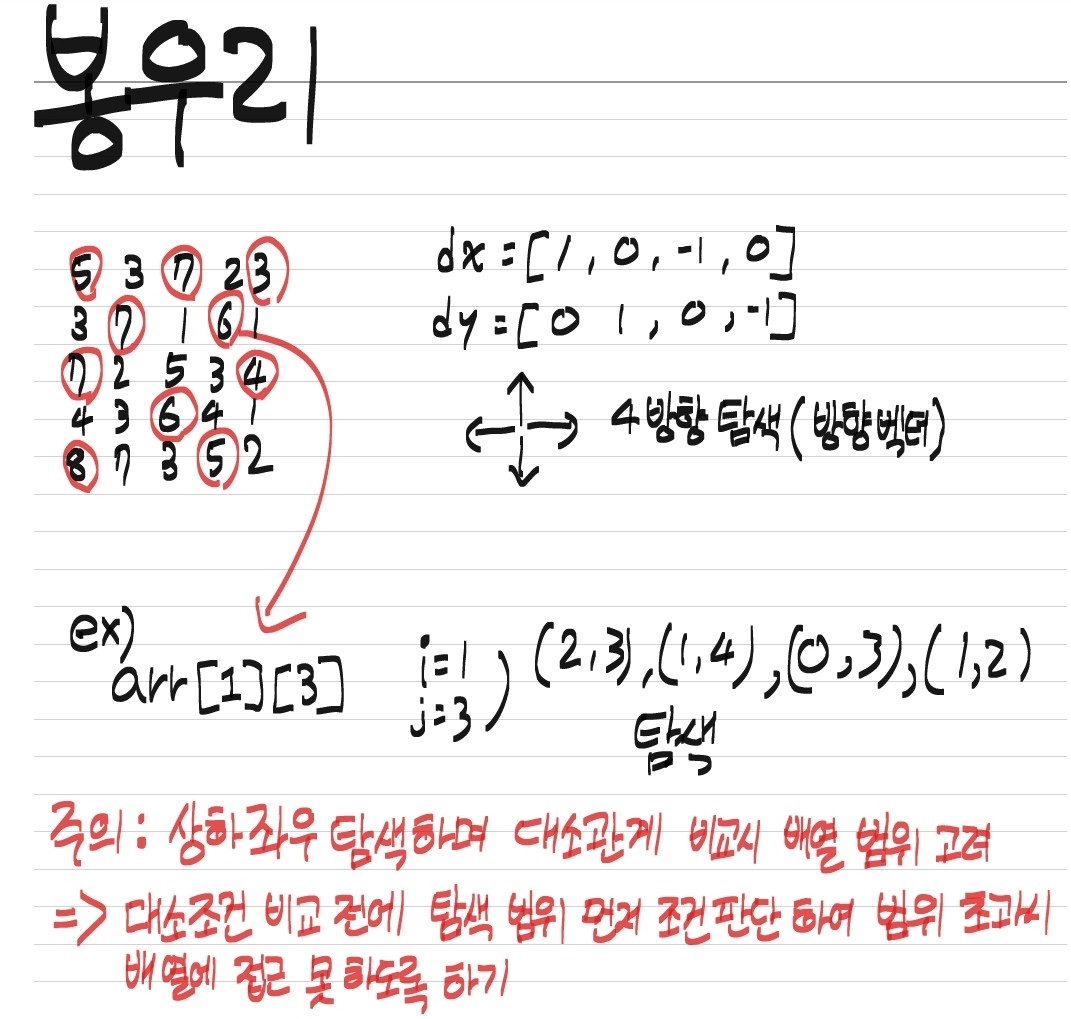 봉우리
5 3 7 2 3
3 7 1 6 1
7 2 5 3 4
4 3 6 4 1
8 7 3 5 2
dx = [1, 0, -1, 0]
dy = [0 1, 0, -1]
4방향 탐색 (방향벡터)
ex)
arr[1][3]
i=1
j=3
) (2,3), (1,4), (0,3), (1,2)
탐색
주의: 상하좌우 탐색하며 대소관계 비교시 배열 범위 고려
=> 대소조건 비교 전에 탐색 범위 먼저 조건 판단 하여 범위 초과시
배열에 접근 못 하도록 하기